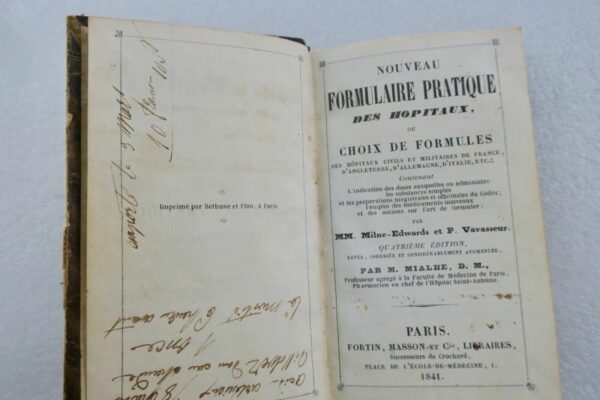 emporté le 3 Mars
Imprimé par Béthune et Plon, à Paris.
1 once
NOUVEAU
FORMULAIRE PRATIQUE
DES HOPITAUX,
OU
CHOIX DE FORMULES
DES HÔPITAUX CIVILS ET MILITAIRES DE FRANCE,
D'ANGLETERRE, D'ALLEMAGNE, D'ITALIE, ETC.;
Contenant
L'indication des doses auxquelles on administre
les substances simples
et les préparations magistrales et officinales du Codex;
l'emploi des médicaments nouveaux
et des notions sur l'art de formuler;
PAR
MM. Milne-Edwards et P. Vavasseur.
QUATRIÈME ÉDITION,
REVUE, CORRIGÉE ET CONSIDÉRABLEMENT AUGMENTÉE
PAR M. MIALHE, D. M.,
Professeur agrégé à la Faculté de Médecine de Paris,
Pharmacien en chef de l'Hôpital Saint-Antoine.
PARIS.
FORTIN, MASSON ET Cie, LIBRAIRES,
Successeurs de Crochard,
PLACE DE L'ÉCOLE-DE-MÉDECINE, 1.
1841.